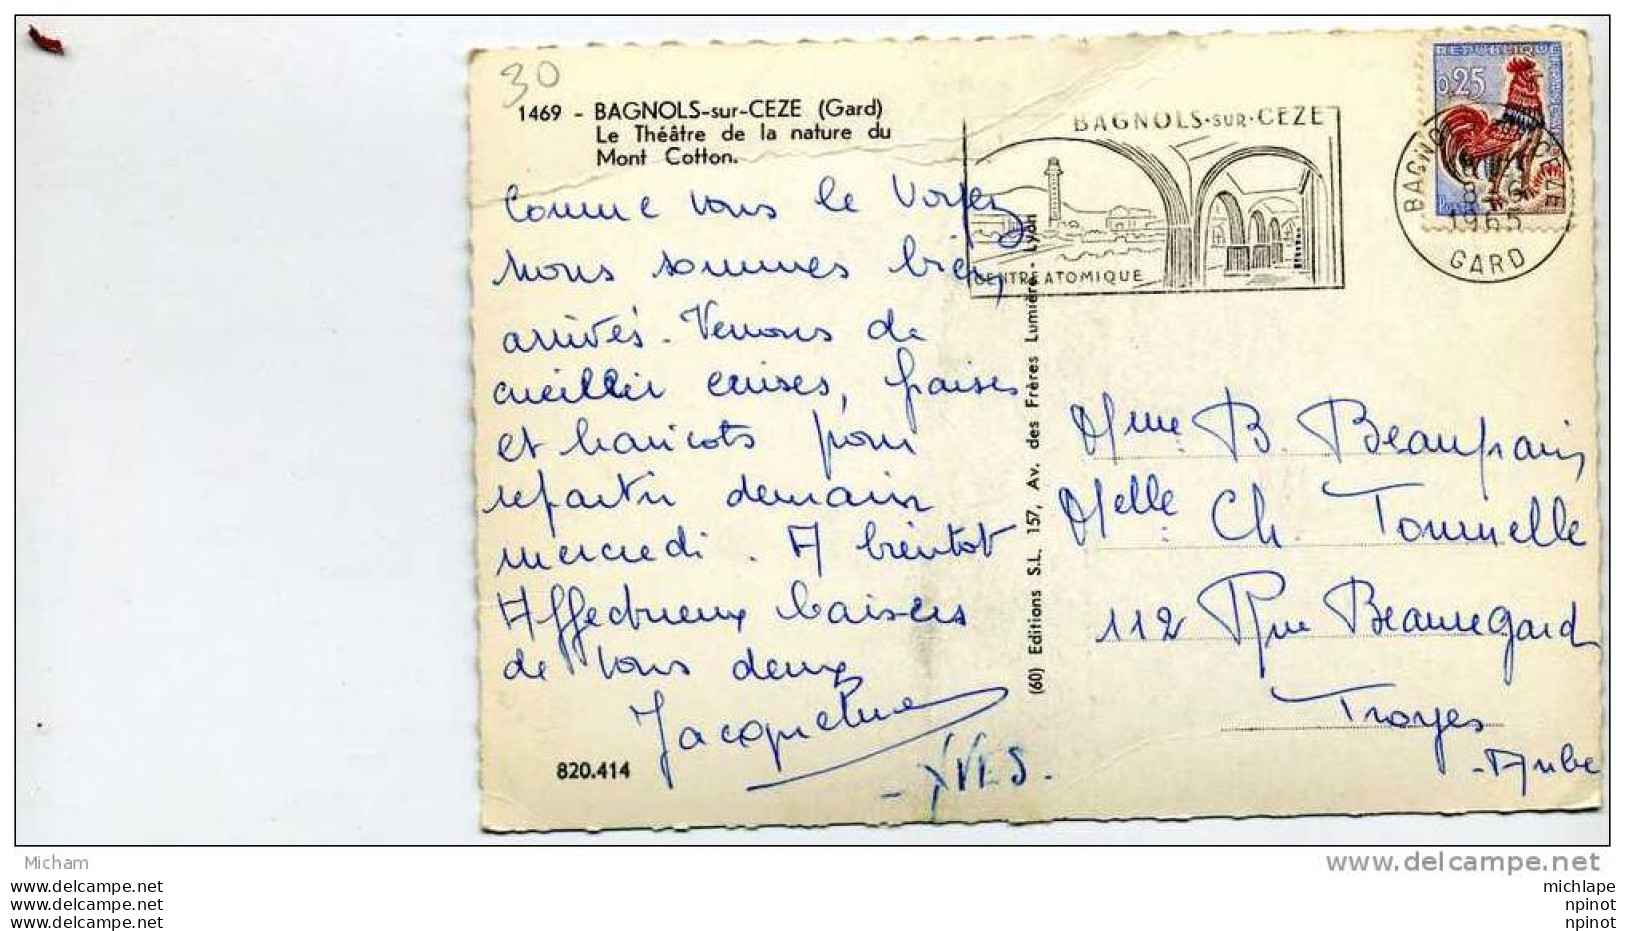 30
1469 - BAGNOLS-sur-CEZE (Gard)
Le Théâtre de la nature du
Mont Cotton.
Comme vous le voyez
nous sommes bien
arrivés. Venons de
cueillir cerises, fraises
et haricots pour
repartir demain
mercredi. A bientôt
Affectueux baisers
de vous deux
Jacqueline
- YVES.
820.414
(60) Editions S.L. 157, Av. des Frères Lumière - Lyon
BAGNOLS-SUR-CEZE
CENTRE ATOMIQUE
REPUBLIQUE FRANÇAISE
0,25
Postes
BAGNOLS CEZE
1965
GARD
Mme B. Beaufrain
Melle Ch. Tournelle
112 Rue Beauregard
Troyes
- Aube
Micham
www.delcampe.net
www.delcampe.net
www.delcampe.net
www.delcampe.net
michlape
npinot
npinot